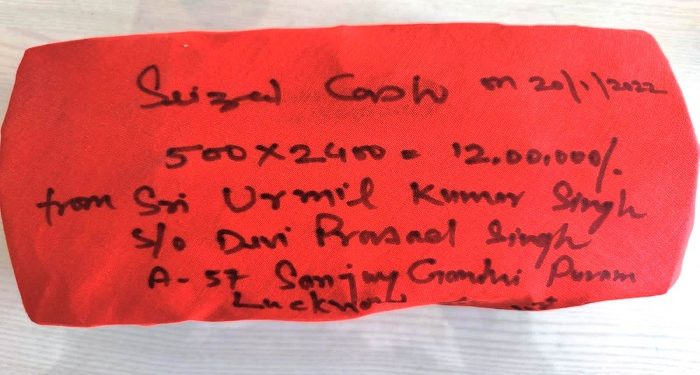 Seized Cash on 20/1/2022
500 x 2400 = 12,00,000/.
from Sri Urmil Kumar Singh
S/o Devi Prasad Singh
A-57 Sanjay Gandhi Puram
Lucknow